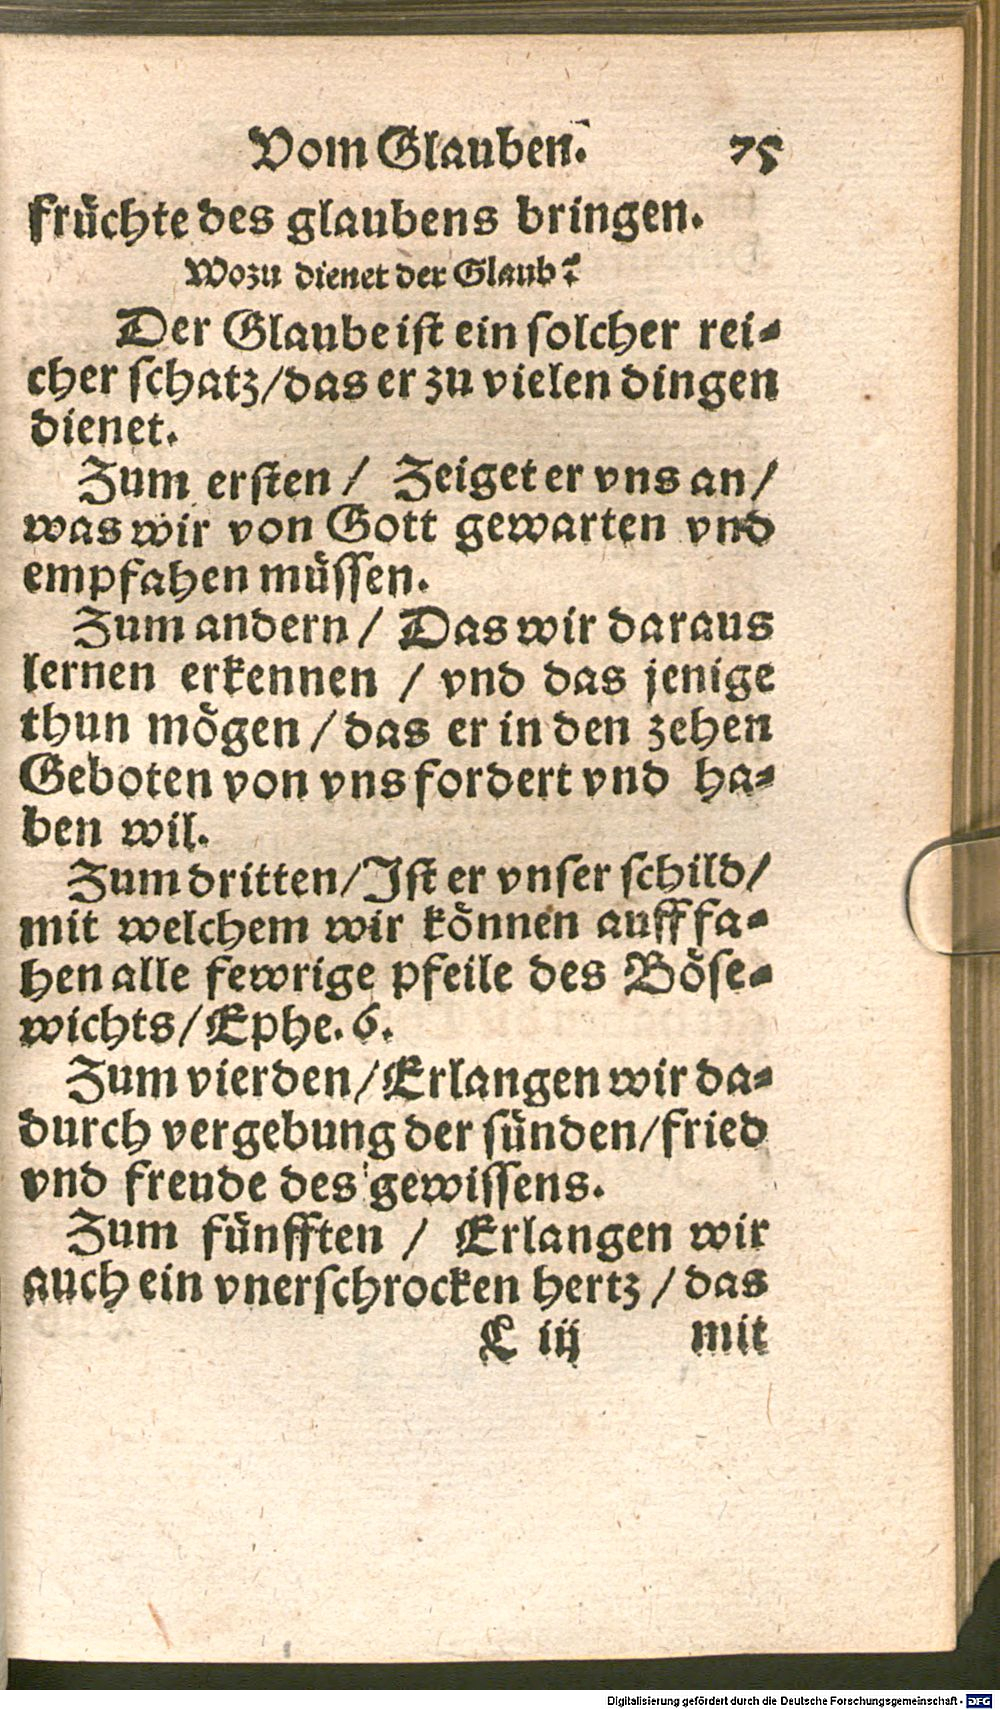 Vom Glauben. 75
früchte des glaubens bringen.
Wozu dienet der Glaub?
Der Glaube ist ein solcher rei-
cher schatz/das er zu vielen dingen
dienet.
Zum ersten / Zeiget er vns an/
was wir von Gott gewarten vnd
empfahen müssen.
Zum andern / Das wir daraus
lernen erkennen / vnd das jenige
thun mögen / das er in den zehen
Geboten von vns fordert vnd ha-
ben wil.
Zum dritten/Ist er vnser schild/
mit welchem wir können aufffa-
hen alle fewrige pfeile des Böse-
wichts/Ephe. 6.
Zum vierden/Erlangen wir da-
durch vergebung der sünden/fried
vnd freude des gewissens.
Zum fünfften / Erlangen wir
auch ein vnerschrocken hertz / das
L iij mit
Digitalisierung gefördert durch die Deutsche Forschungsgemeinschaft - DFG